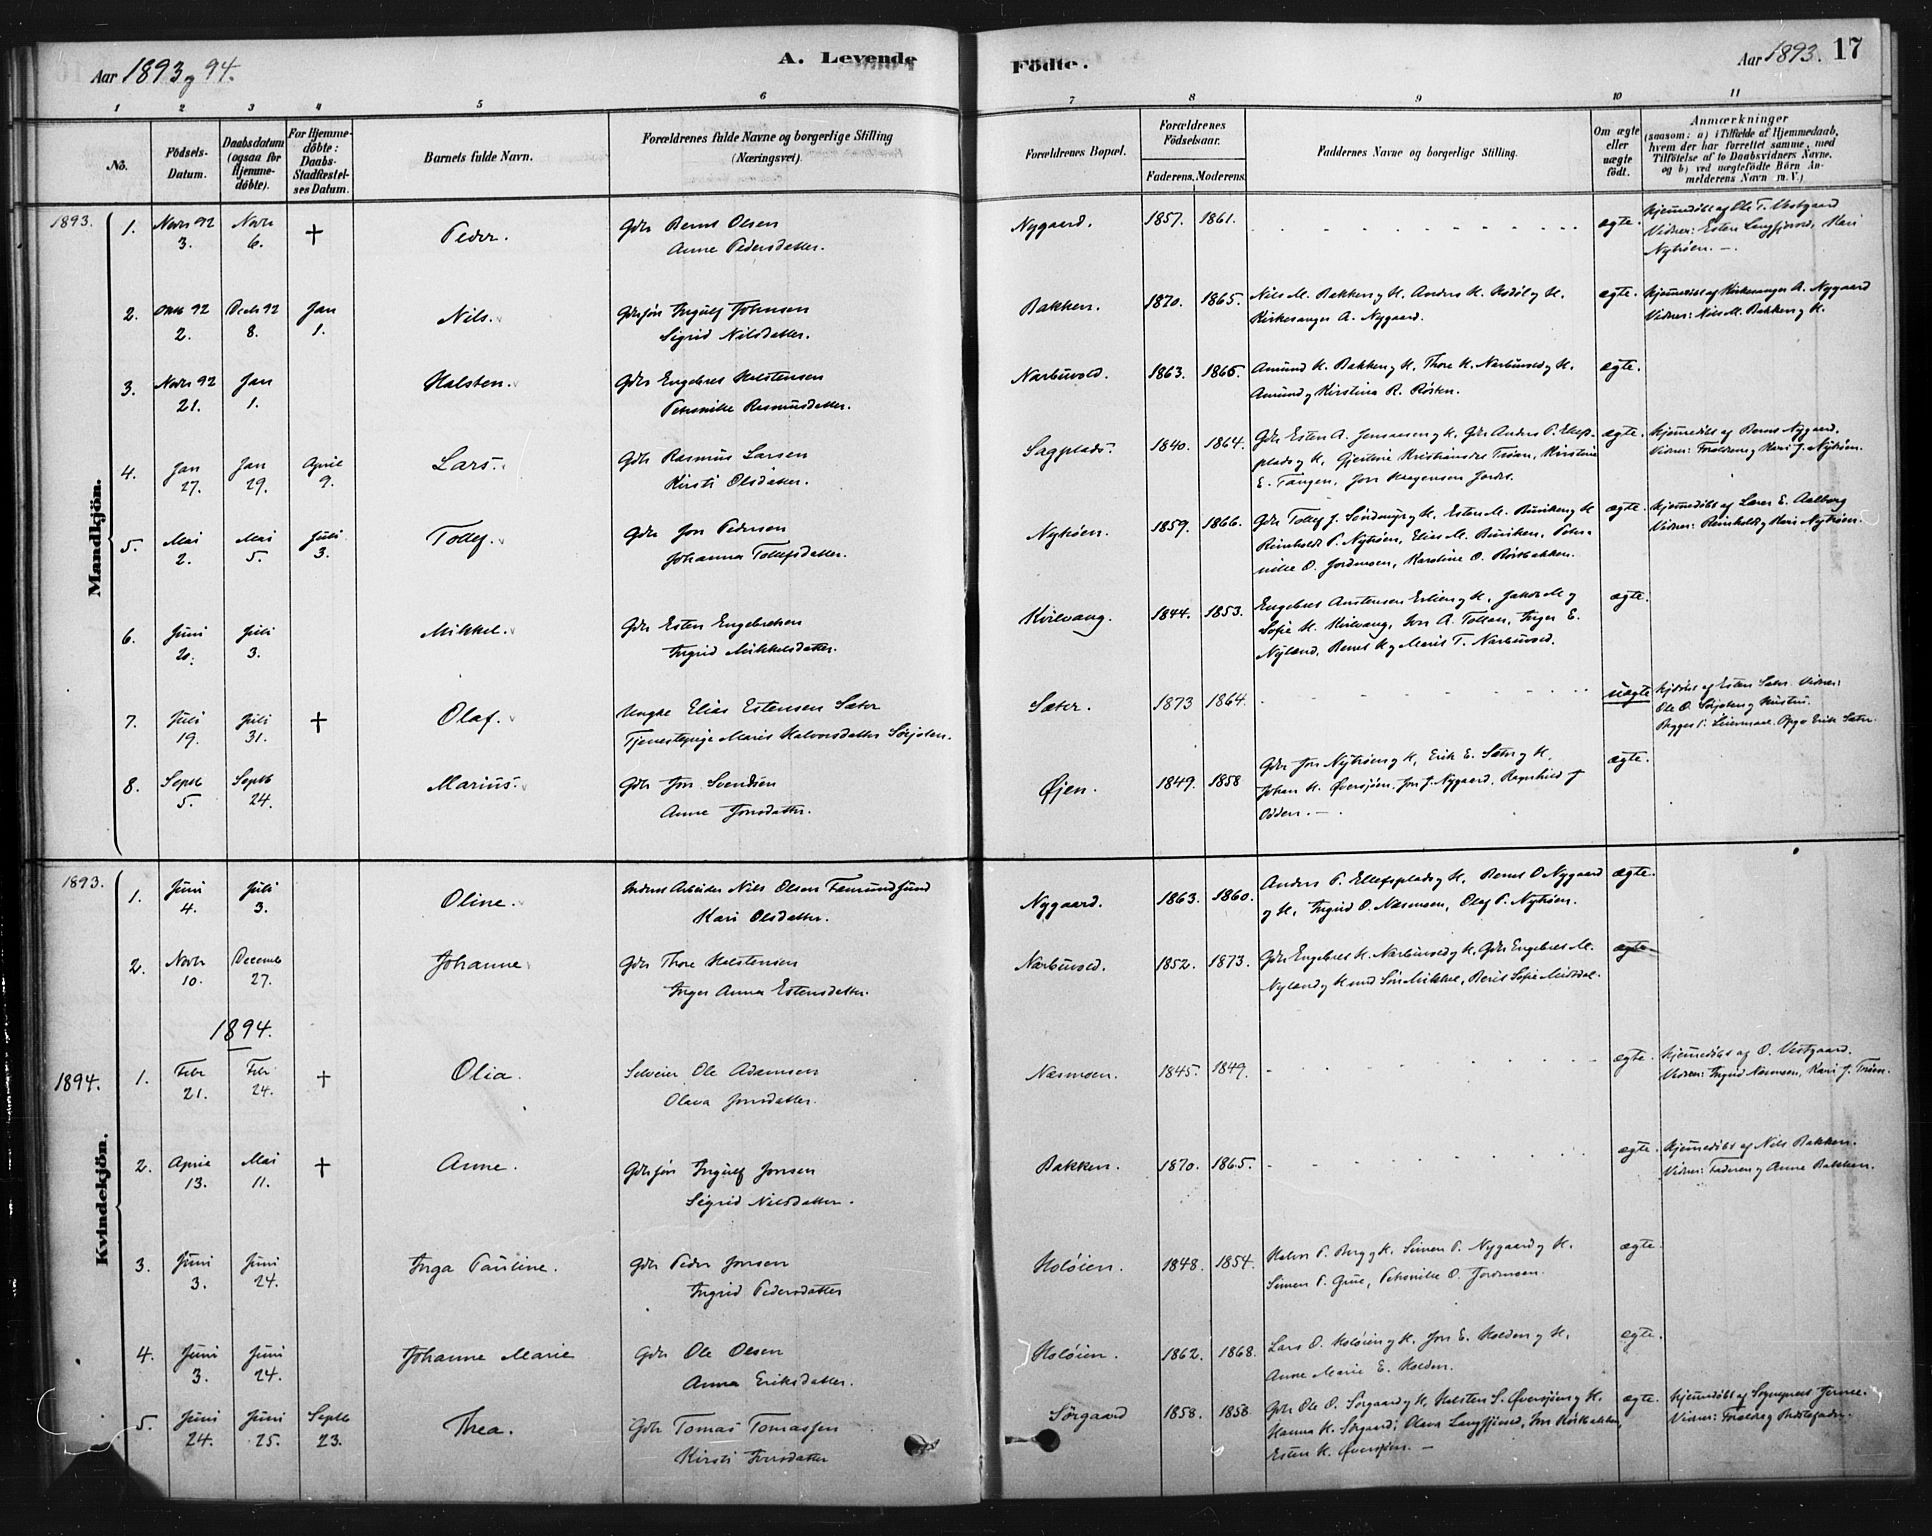 Aar 1893 og 94.
A. Levende
Födte.
Aar 1893.
17
1 2 3 4 5 6 7 8 9 10 11
No.
Födsels-Datum.
Daabsdatum (ogsaa for Hjemme-döbte).
For Hjemme-döbte: Daabs-Stadfæstel-ses Datum.
Barnets fulde Navn.
Forældrenes fulde Navne og borgerlige Stilling (Næringsvei).
Forældrenes Bopæl.
Forældrenes Födselsaar.
Faderens. Moderens.
Faddernes Navne og borgerlige Stilling.
Om ægte eller uægte födt.
Anmærkninger
(saasom: a) i Tilfælde af Hjemmedaab, hvem der har forrettet samme, med Tilföielse af to Daabsvidners Navne, og b) ved uægtefödte Börn An-melderens Navn m. V.)
Mandkjön.
1893.
1. Novbr 92 3. Novbr 6. † Peder. Gdbr Bernt Olsen
Anne Pedersdatter.
Nygaard. 1857. 1861. ægte. Hjemmedöbt af Ole T. Vestgaard
Vidner: Esten Langfjord, Mari
Nytröen. —
2. 92 2. Decbr 92 8. Jan 1. Nils. Ingulf Johnsen
Sigrid Nilsdatter.
Bakken. 1870. 1865. Nils M. Bakken og H. Anders H. og H.
Kirkesanger A. Nygaard.
ægte. Hjemmedöbt af Kirkesanger A. Nygaard
Vidner: Nils M. Bakken og H.
3. Novbr 92 21. Jan 1. Halsten. Gdbr Engebret Halstensen
Petronille Rasmusdatter.
Narbuvold. 1863. 1865. Amund H. Bakken og H. Thore H. Narbuvold og H.
Amund og Kirstina R. Rösten.
ægte.
4. Jan 27. Jan 29. April 9. Lars. Gdbr Rasmus Larsen
Kirsti Olsdatter.
Sagplads. 1840. 1864. Gdbr Esten A. og H. Gdbr Anders P. Ellefs-
plads og H, Kristiansdtr Tröan, Kirstine
E. Tangen, Jon
ægte. Hjemmedöbt af Bernt Nygaard.
Vidner: Forældrene og Kari J. Nytröen.
5. Mai 2. Mai 5. Juli 3. Tollef. Gdbr Jon Pedersen
Johanna Tollefsdatter.
Nytröen. 1859. 1866. Gdbr Tollef J. og H. Esten M. og H
Reinholdt P. Nytröen, Elias M. Petro-
nille O. Jordmoen, Karoline O. Röstbakken.
ægte. Hjemmedöbt af Lars E. Aalborg
Vidner: Reinholdt og Mari Nytröen.
6. Juni 20. Juli 3. Mikkel. Gdbr Esten Engebretsen
Ingrid Mikkelsdatter.
Kvilvang. 1844. 1853. Engebret Estensen og H, Jakob M og
Sofie H. Kvilvang, Iver A. Tollan, Inger E.
Nyland, Bernt H og Marit T. Narbuvold.
ægte.
7. Juli 19. Juli 31. † Olaf. Ungkr Elias Estensen Sæter
Tjenestepige Marit Halvorsdatter Sörjoten.
Sæter. 1873 1864. uægte af Esten Sæter. Vidner:
Ole O. og Hustru.
Begges 1. Leiermaal. Opgv Erik Sæter.
8. Septb 5. Septb 24. Marius. Gdbr Jon Svendsen
Anne Jonsdatter.
Øien. 1849. 1858 Gdbr Jon Nytröen og H, Erik E. Sæter og H.
Johan H. Översjöen. Jon J. Nygaard, Ragnhild J
Odden. —
ægte.
Kvindekjön.
1893.
1. Juni 4. Juli 3. Oline. Arbeider Nils Olsen Femundsund
Kari Olsdatter.
Nygaard. 1863. 1860. Anders P. Ellefsplads og H. Bernt O Nygaard
og H, Ingrid O. Næsmoen, Olaf P. Nytröen.
ægte.
2. Novbr 10. Decemb 27. Johanne Gdbr Thore Halstensen
Inger Anna Estensdatter.
Narbuvold. 1852. 1873. Gdbr Engebret H. Narbuvold og H. Gdbr Engebret M.
Nyland og H med Sön Mikkel, Berit Sofie
ægte
1894.
1894.
1. Febr 21. Febr 24. † Olia. Selveier Ole Adamsen
Olava Jonsdatter.
Næsmoen. 1845. 1849. ægte. Hjemmedöbt af O. Vestgaard.
Vidner: Ingrid Næsmoen, Kari J. Tröen.
2. April 13. Mai 11. † Anne. Ingulf Jonsen
Sigrid Nilsdatter.
Bakken. 1870. 1865. ægte. Hjemmedöbt af Nils Bakken.
Vidner: Faderen og Anne Bakken.
3. Juni 3. Juni 24. Inga Pauline. Gdbr Peder Jonsen
Ingrid Pedersdatter
Holöien. 1848. 1854. Halvor P. Berg og H. Simen P. Nygaard og H.
Simen P. Grue, Petronille O. Jordmoen.
ægte.
4. Juni 3. Juni 24. Johanne Marie Gdbr Ole Olsen
Anna Eriksdatter.
Holöien. 1862. 1868. Lars O. Holöien og H. Jon E. Holden og H.
Anne Marie E. Holden.
ægte.
5. Juni 24. Juni 25. Septb 23. Thea. Gdbr Tomas Tomassen
Kirsti Iversdatter
Sörgaard 1858. 1858 Gdbr Ole O. Sörgaard og H, Halsten S. Översjöen og H.
Hanna H. Sörgaard, Olava Langfjord, Iver Röstbakken,
Esten H. Översjöen. —
ægte. Hjemmedöbt af Sogneprest
Vidner: Forældre og